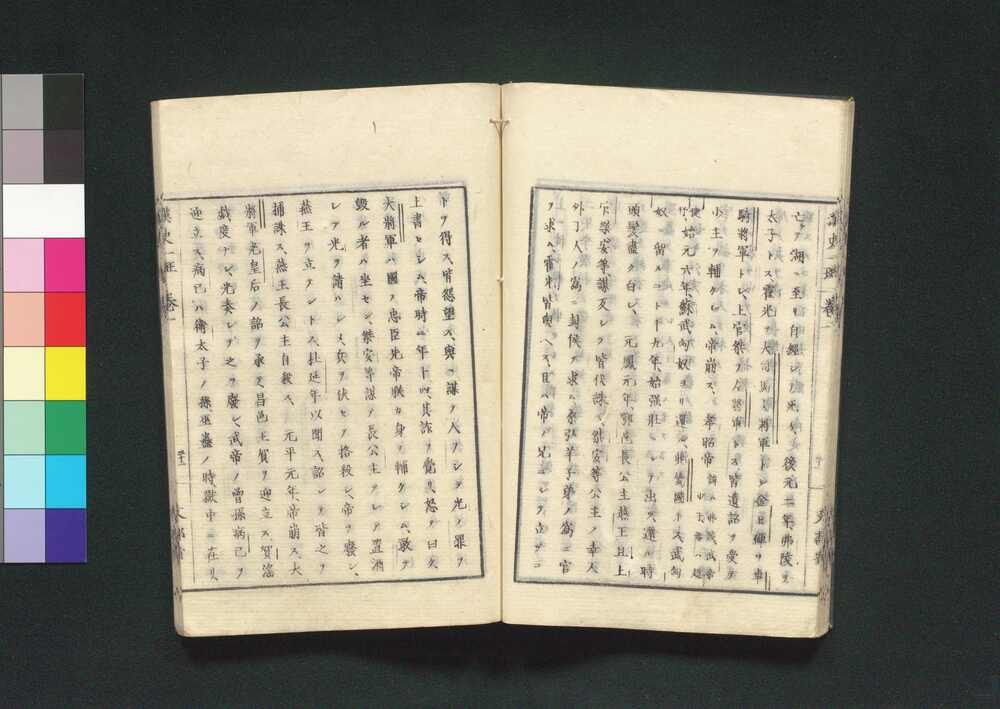 亡テ湖ニ至リ自經シテ死ス、後元二年弗陵ヲ
太子トス霍光ヲ大司馬大將軍トシ金日磾ヲ車
騎將軍トシ、上官桀ヲ左將軍トス皆遺詔ヲ受テ
小主ヲ輔ケシム、帝崩ス、孝昭帝
始元六年、蘇武匈奴ヨリ還ル典屬國トス武匈
奴ニ留ルコト十九年、始強壯ニシテ出ツ、還ル時
頭髮盡ク白シ、元鳳元年、鄂邑長公主燕王旦上
官桀安等謀反シテ皆伏誅ス、桀安等公主ノ幸人
外人ノ爲ニ封侯ヲ求ム、桑弘羊子弟ノ爲ニ官
ヲ求ム、霍光皆與ヘス、旦ハ帝ノ兄ニシテ立ツコ
トヲ得ス、皆怨望ス、與ニ謀テ人ヲシテ光ノ罪ヲ
上書セシム、帝時ニ年十四、其詐ヲ覺リ、怒テ曰ク、
大將軍ハ國ノ忠臣先帝朕カ身ヲ輔ケシム、敢テ
毀ル者ハ坐セン、桀安等謀テ長公主ヲシテ置酒
シテ光ヲ請ハシメ兵ヲ伏セテ格殺シ、帝ヲ廢シ、
燕王ヲ立ケントス、杜延年以聞ス、詔シテ皆之ヲ
捕誅ス、燕王長公主自殺ス、元平元年、帝崩ス、大
將軍光皇后ノ詔ヲ承ケ昌邑王賀ヲ迎立ス、賀淫
戲度ナシ、光奏シテ之ヲ廢シ武帝ノ曾孫病已ヲ
迎立ス、病已ハ衛太子ノ孫、巫蠱ノ時、獄中ニ在リ、
漢史一班 卷一